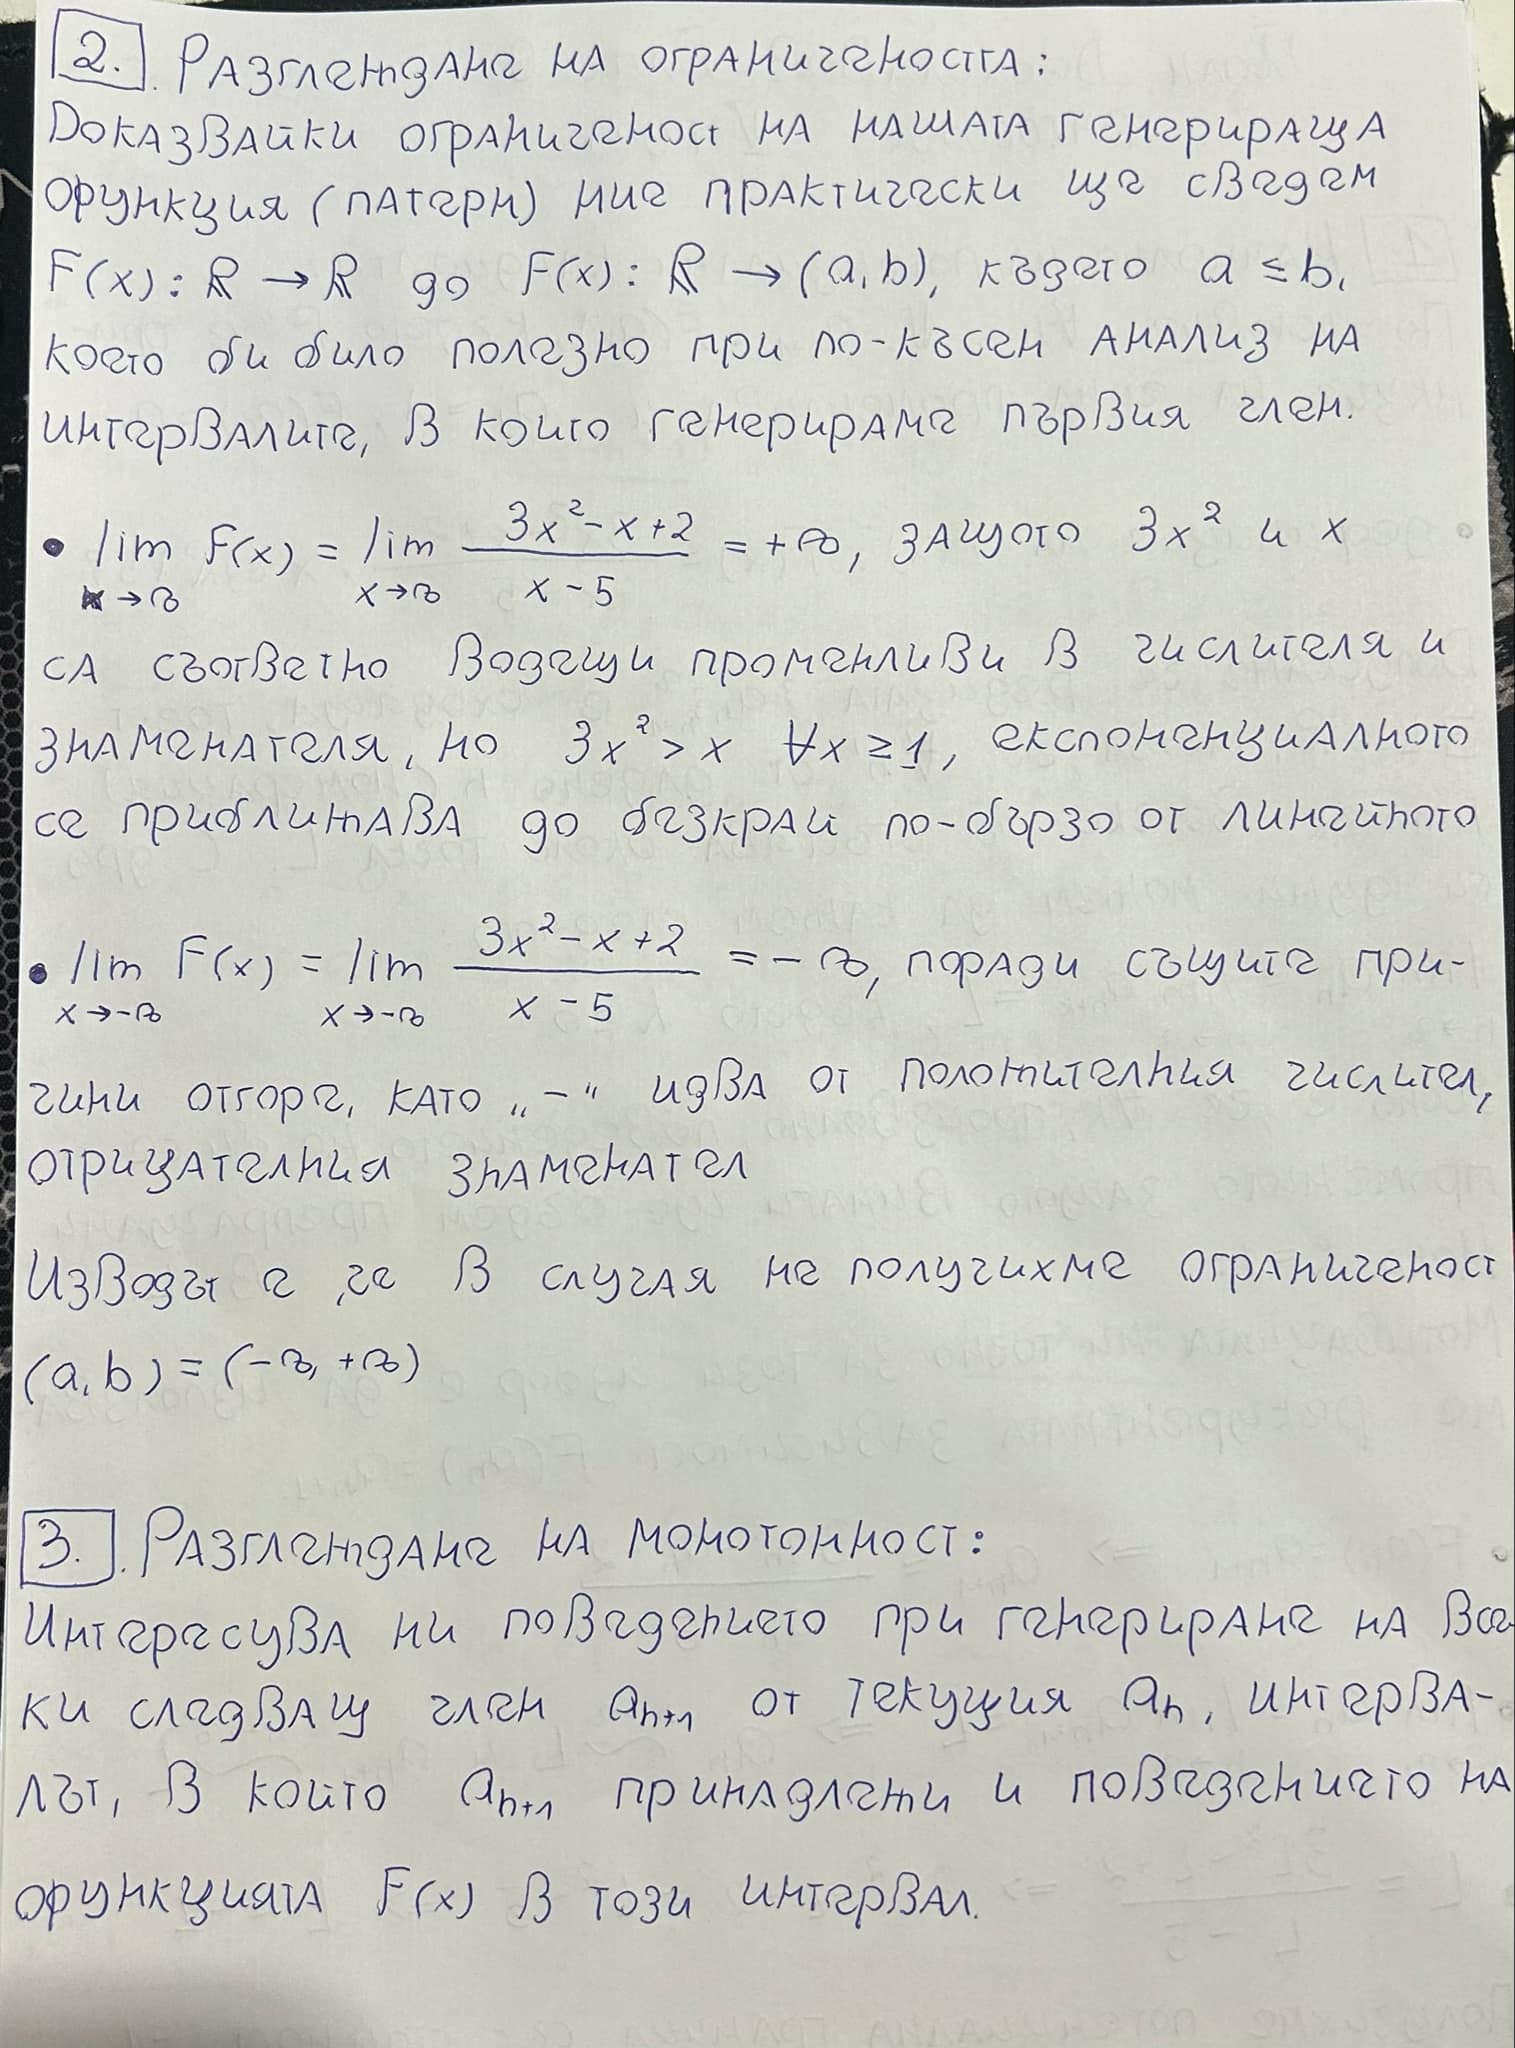 2. Разглеждане на ограничеността:
Доказвайки ограниченост на нашата генерираща
функция (патерн) ние практически ще сведем
F(x): ℝ → ℝ до F(x): ℝ → (a, b), където a ≤ b,
което би било полезно при по-късен анализ на
интервалите, в които генерираме първия член.
• lim F(x) = lim (3x² - x + 2)/(x - 5) = +∞, защото 3x² и x
x→∞ x→∞
са съответно водещи променливи в числителя и
знаменателя, но 3x² > x ∀x ≥ 1, експоненциалното
се приближава до безкрай по-бързо от линейното
• lim F(x) = lim (3x² - x + 2)/(x - 5) = -∞, поради същите при-
x→-∞ x→-∞
чини отгоре, като „-“ идва от положителния числител,
отрицателния знаменател
Изводът е, че в случая не получихме ограниченост
(a, b) = (-∞, +∞)
3. Разглеждане на монотонност:
Интересува ни поведението при генериране на все-
ки следващ член aₙ₊₁ от текущия aₙ, интерва-
лът, в който aₙ₊₁ принадлежи и поведението на
функцията F(x) в този интервал.